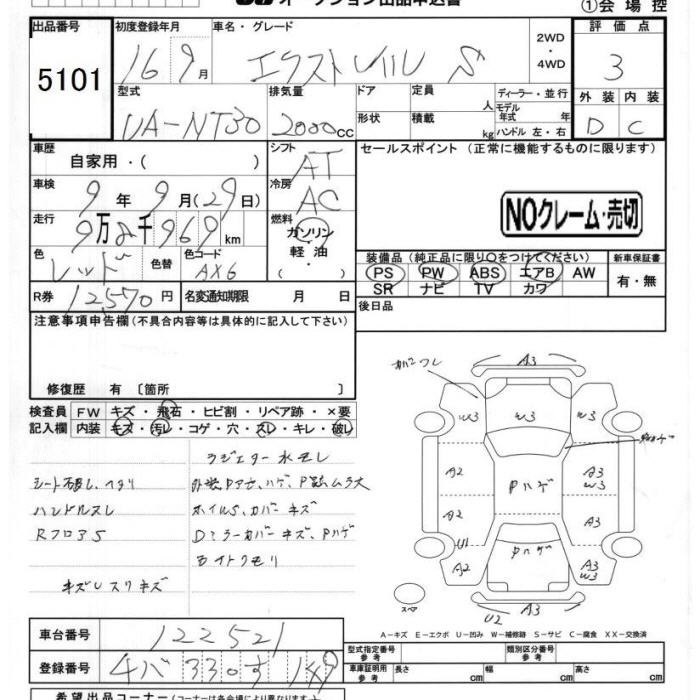 オークション出品申込書
①会場控
出品番号 5101
初度登録年月 16 9月
車名・グレード エクストレイル S
2WD・4WD
評価点 3
外装 D 内装 C
型式 UA-NT30
排気量 2000cc
ドア 形状
定員 人 積載 kg
ディーラー・並行
モデル年式 年式
ハンドル 左・右
車歴 自家用・( )
シフト AT
セールスポイント (正常に機能するものに限ります)
車検 9年9月(29日)
冷房 AC
NOクレーム・売切
走行 9万8千969km
燃料 ガソリン・軽油・( )
色 レッド 色替 色コード AX6
装備品 (純正品に限り○をつけてください)
新車保証書 有・無
PS PW ABS エアB AW
SR ナビ TV カワ
R券 12570円 名変通知期限 月 日
後日品
注意事項申告欄 (不具合内容等は具体的に記入して下さい)
修復歴 有 〔箇所 〕
検査員記入欄
FW キズ・飛石・ヒビ割・リペア跡・×要
内装 キズ・汚レ・コゲ・穴・スレ・キレ・破レ
ラジエター水モレ
シート破レ、ヘタリ
ハンドルスレ
ホイルS、カバーキズ
RフロアS
Dミラーカバーキズ、Pハゲ
ライトクモリ
キズUスリキズ
カバーワレ
A3
W3 W3 W3
A2 Pハゲ A3 W3
A2 A3
U1 Pハゲ
A2 A3 W3
スペア
U2 A3
A－キズ E－エクボ U－凹み W－補修跡 S－サビ C－腐食 XX－交換済
車台番号 122521
型式指定番号 参考
類別区分番号 参考
登録番号
車庫証明用 参考 長さ cm 幅 cm 高さ cm
希望出品コーナー (コーナーは各会場により異なります)